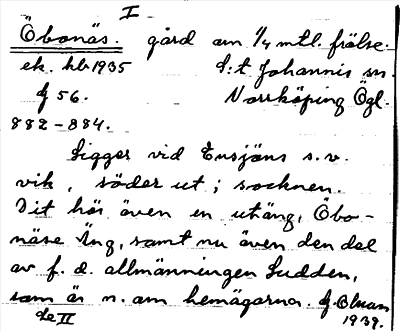 I
Öbonäs. gård om 1/4 mtl. frälse.
ek. kb 1935 S:t Johannis sn.
f 56. Norrköping Ögl.
882-884.
Ligger vid Ensjöns s.v.
vik, söder ut i socknen.
Dit hör även en utäng, Öbo-
näse Äng, samt nu även den del
av f. d. allmänningen Sudden,
som är n. om hemägorna.
II 1939.